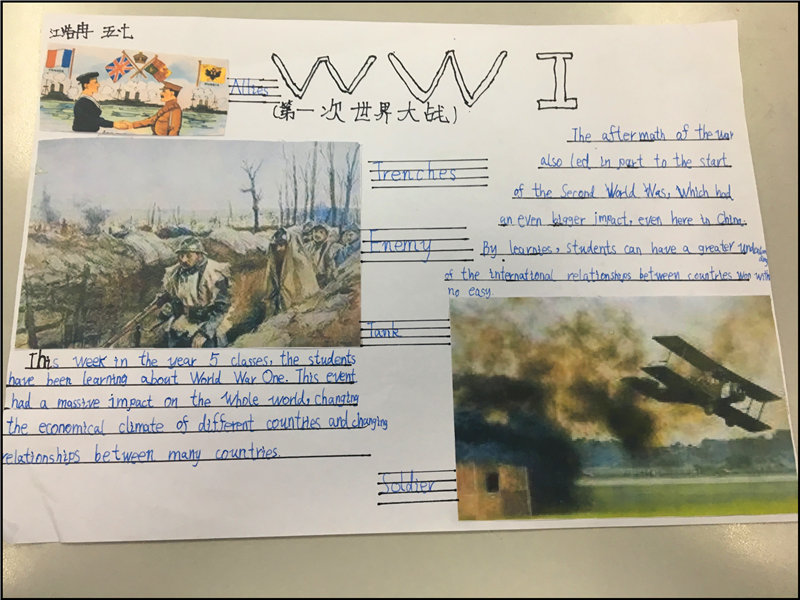 江浩冉 五.七
FRANCE
RUSSIA
Allies
WW I
(第一次世界大战)
Trenches
Enemy
Tank
Soldier
The aftermath of the war
also led in part to the start
of the Second World Was, Which had
an even bigger impact, even here in China.
By learnies, students can have a greater
of the international relationships between countries with
no easy.
This week in the year 5 classes, the students
have been learning about World War One. This event
had a massive impact on the whole world, changing
the economical climate of different countries and changing
relationships between many countries.